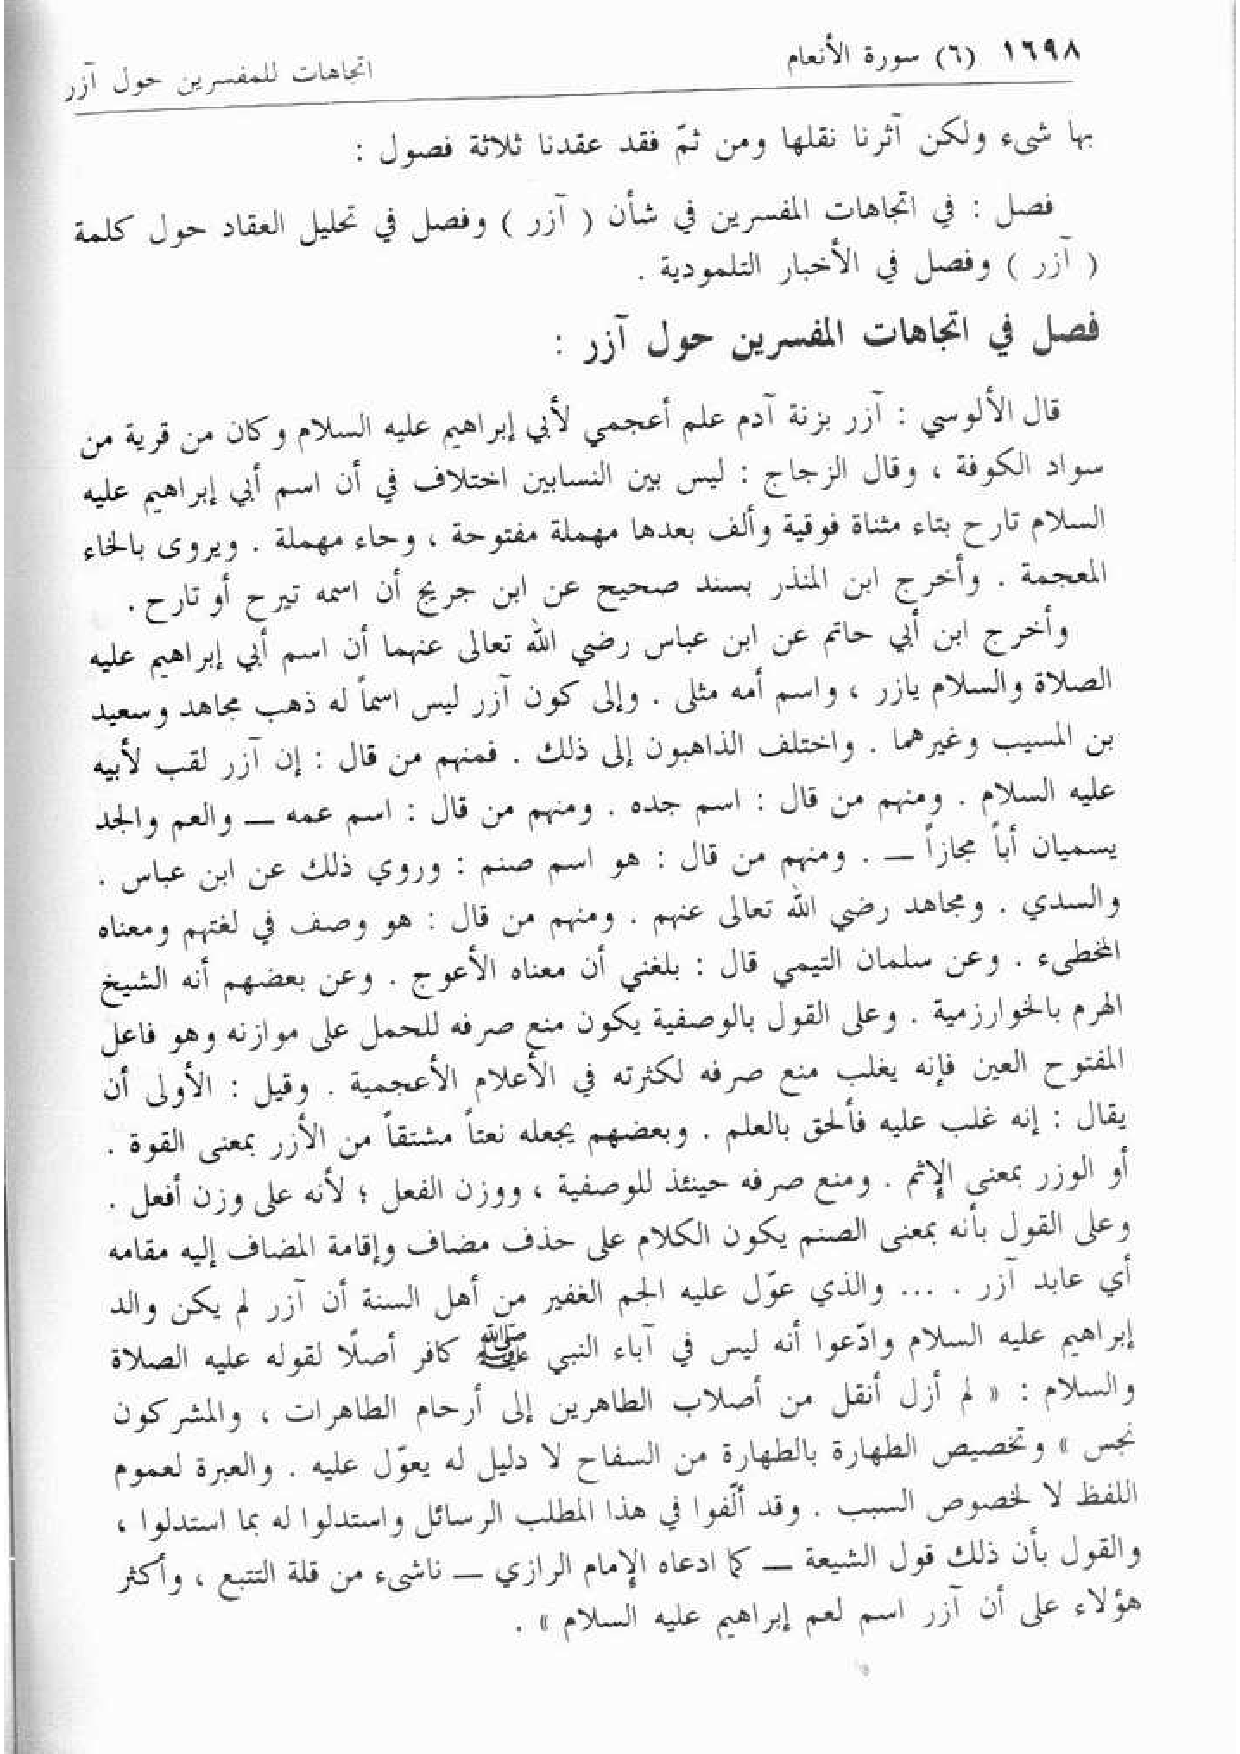 ١٦٩٨ (٦) سورة الأنعام
اتجاهات للمفسرين حول آزر
بها شيء ولكن آثرنا نقلها ومن ثمّ فقد عقدنا ثلاثة فصول :
فصل : في اتجاهات المفسرين في شأن ( آزر ) وفصل في تحليل العقاد حول كلمة
( آزر ) وفصل في الأخبار التلمودية .
فصل في اتجاهات المفسرين حول آزر :
قال الألوسي : آزر بزنة آدم علم أعجمي لأبي إبراهيم عليه السلام وكان من قرية من
سواد الكوفة ، وقال الزجاج : ليس بين النسابين اختلاف في أن اسم أبي إبراهيم عليه
السلام تارح بتاء مثناة فوقية وألف بعدها مهملة مفتوحة ، وحاء مهملة . ويروى بالخاء
المعجمة . وأخرج ابن المنذر بسند صحيح عن ابن جريج أن اسمه تيرح أو تارح .
وأخرج ابن أبي حاتم عن ابن عباس رضي الله تعالى عنهما أن اسم أبي إبراهيم عليه
الصلاة والسلام يازر ، واسم أمه مثلى . وإلى كون آزر ليس اسماً له ذهب مجاهد وسعيد
بن المسيب وغيرهما . واختلف الذاهبون إلى ذلك . فمنهم من قال : إن آزر لقب لأبيه
عليه السلام . ومنهم من قال : اسم جده . ومنهم من قال : اسم عمه ــ والعم والجد
يسميان أباً مجازاً ــ . ومنهم من قال : هو اسم صنم : وروي ذلك عن ابن عباس .
والسدي . ومجاهد رضي الله تعالى عنهم . ومنهم من قال : هو وصف في لغتهم ومعناه
المخطيء . وعن سلمان التيمي قال : بلغني أن معناه الأعوج . وعن بعضهم أنه الشيخ
الهرم بالخوارزمية . وعلى القول بالوصفية يكون منع صرفه للحمل على موازنه وهو فاعل
المفتوح العين فإنه يغلب منع صرفه لكثرته في الأعلام الأعجمية . وقيل : الأولى أن
يقال : إنه غلب عليه فألحق بالعلم . وبعضهم يجعله نعتاً مشتقاً من الأزر بمعنى القوة .
أو الوزر بمعنى الإثم . ومنع صرفه حينئذ للوصفية ، ووزن الفعل ؛ لأنه على وزن أفعل .
وعلى القول بأنه بمعنى الصنم يكون الكلام على حذف مضاف وإقامة المضاف إليه مقامه
أي عابد آزر . ... والذي عوّل عليه الجم الغفير من أهل السنة أن آزر لم يكن والد
إبراهيم عليه السلام وادّعوا أنه ليس في آباء النبي ﷺ كافر أصلًا لقوله عليه الصلاة
والسلام : « لم أزل أنقل من أصلاب الطاهرين إلى أرحام الطاهرات ، والمشركون
نجس » وتخصيص الطهارة بالطهارة من السفاح لا دليل له يعوّل عليه . والعبرة لعموم
اللفظ لا لخصوص السبب . وقد ألّفوا في هذا المطلب الرسائل واستدلوا له بما استدلوا ،
والقول بأن ذلك قول الشيعة ــ كما ادعاه الإمام الرازي ــ ناشيء من قلة التتبع ، وأكثر
هؤلاء على أن آزر اسم لعم إبراهيم عليه السلام » .